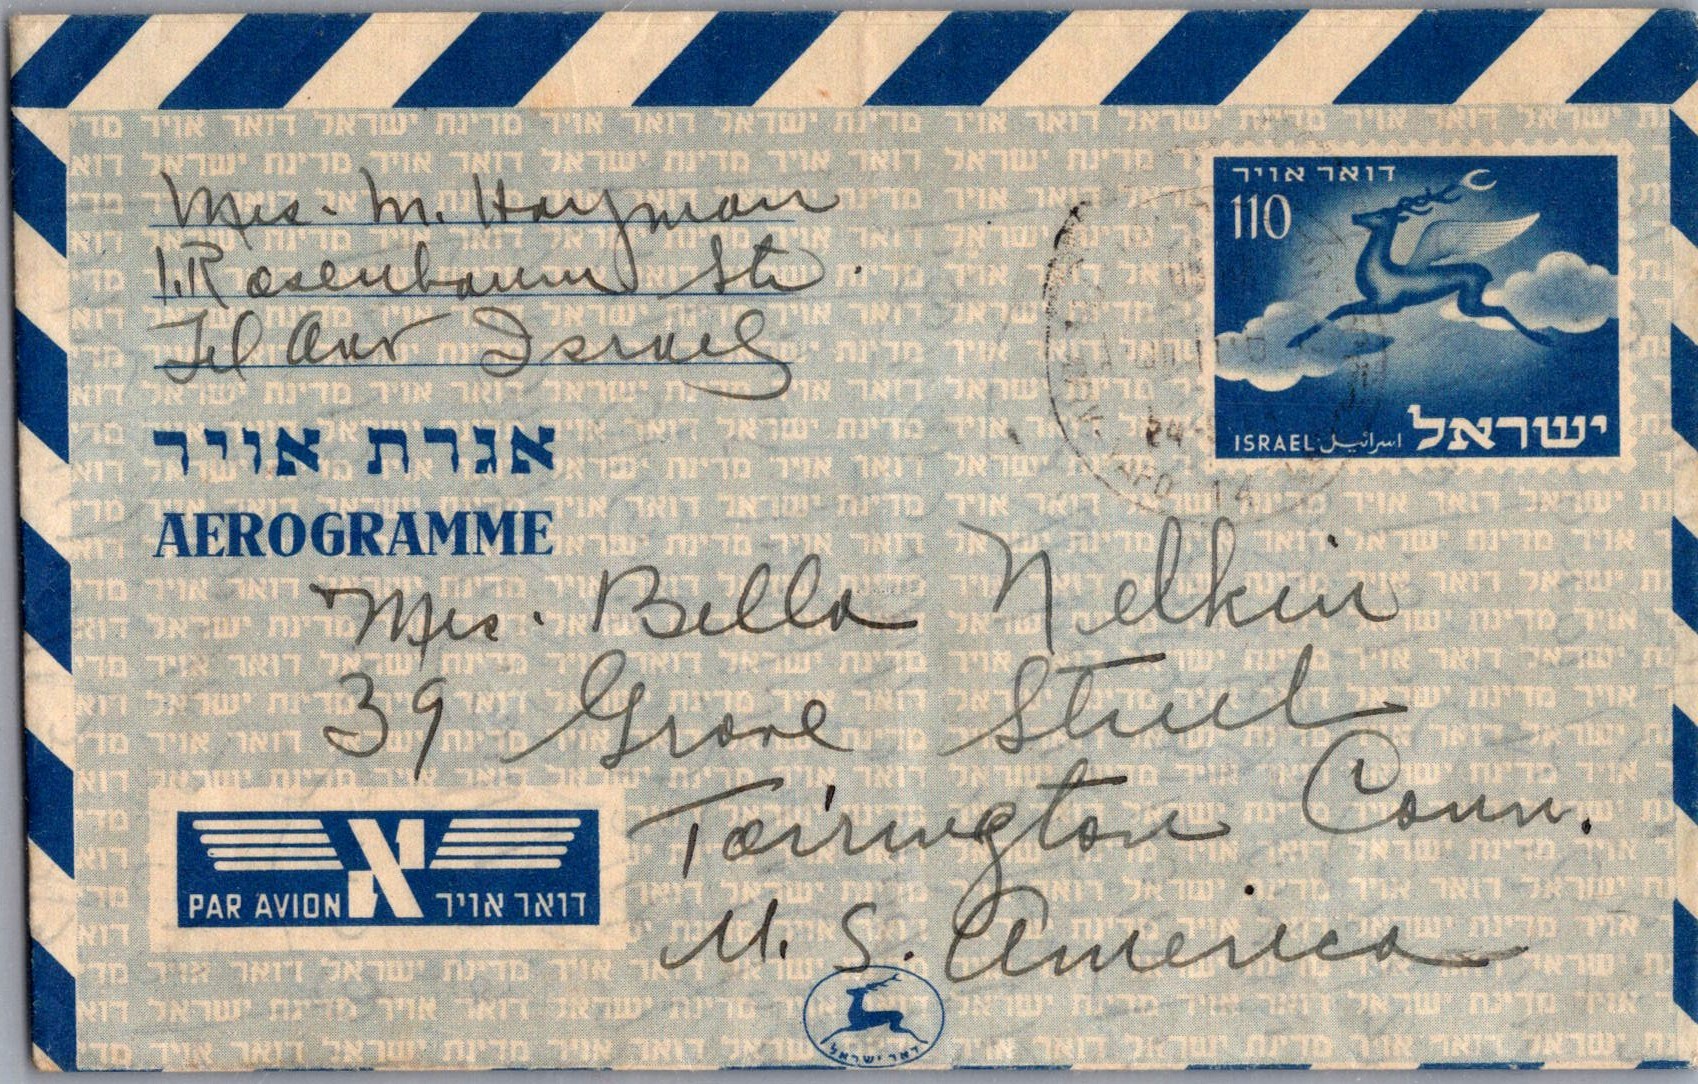 Mrs. M. Hayman
1. Rosenbaum Str.
Tel Aviv Israel
אגרת אויר
AEROGRAMME
דואר אויר
110
ISRAEL اسرائيل ישראל
Mrs. Bella Nelkin
39 Grove Street
Torrington Conn.
U. S. America
PAR AVION דואר אויר
דאר ישראל
מדינת ישראל דואר אויר